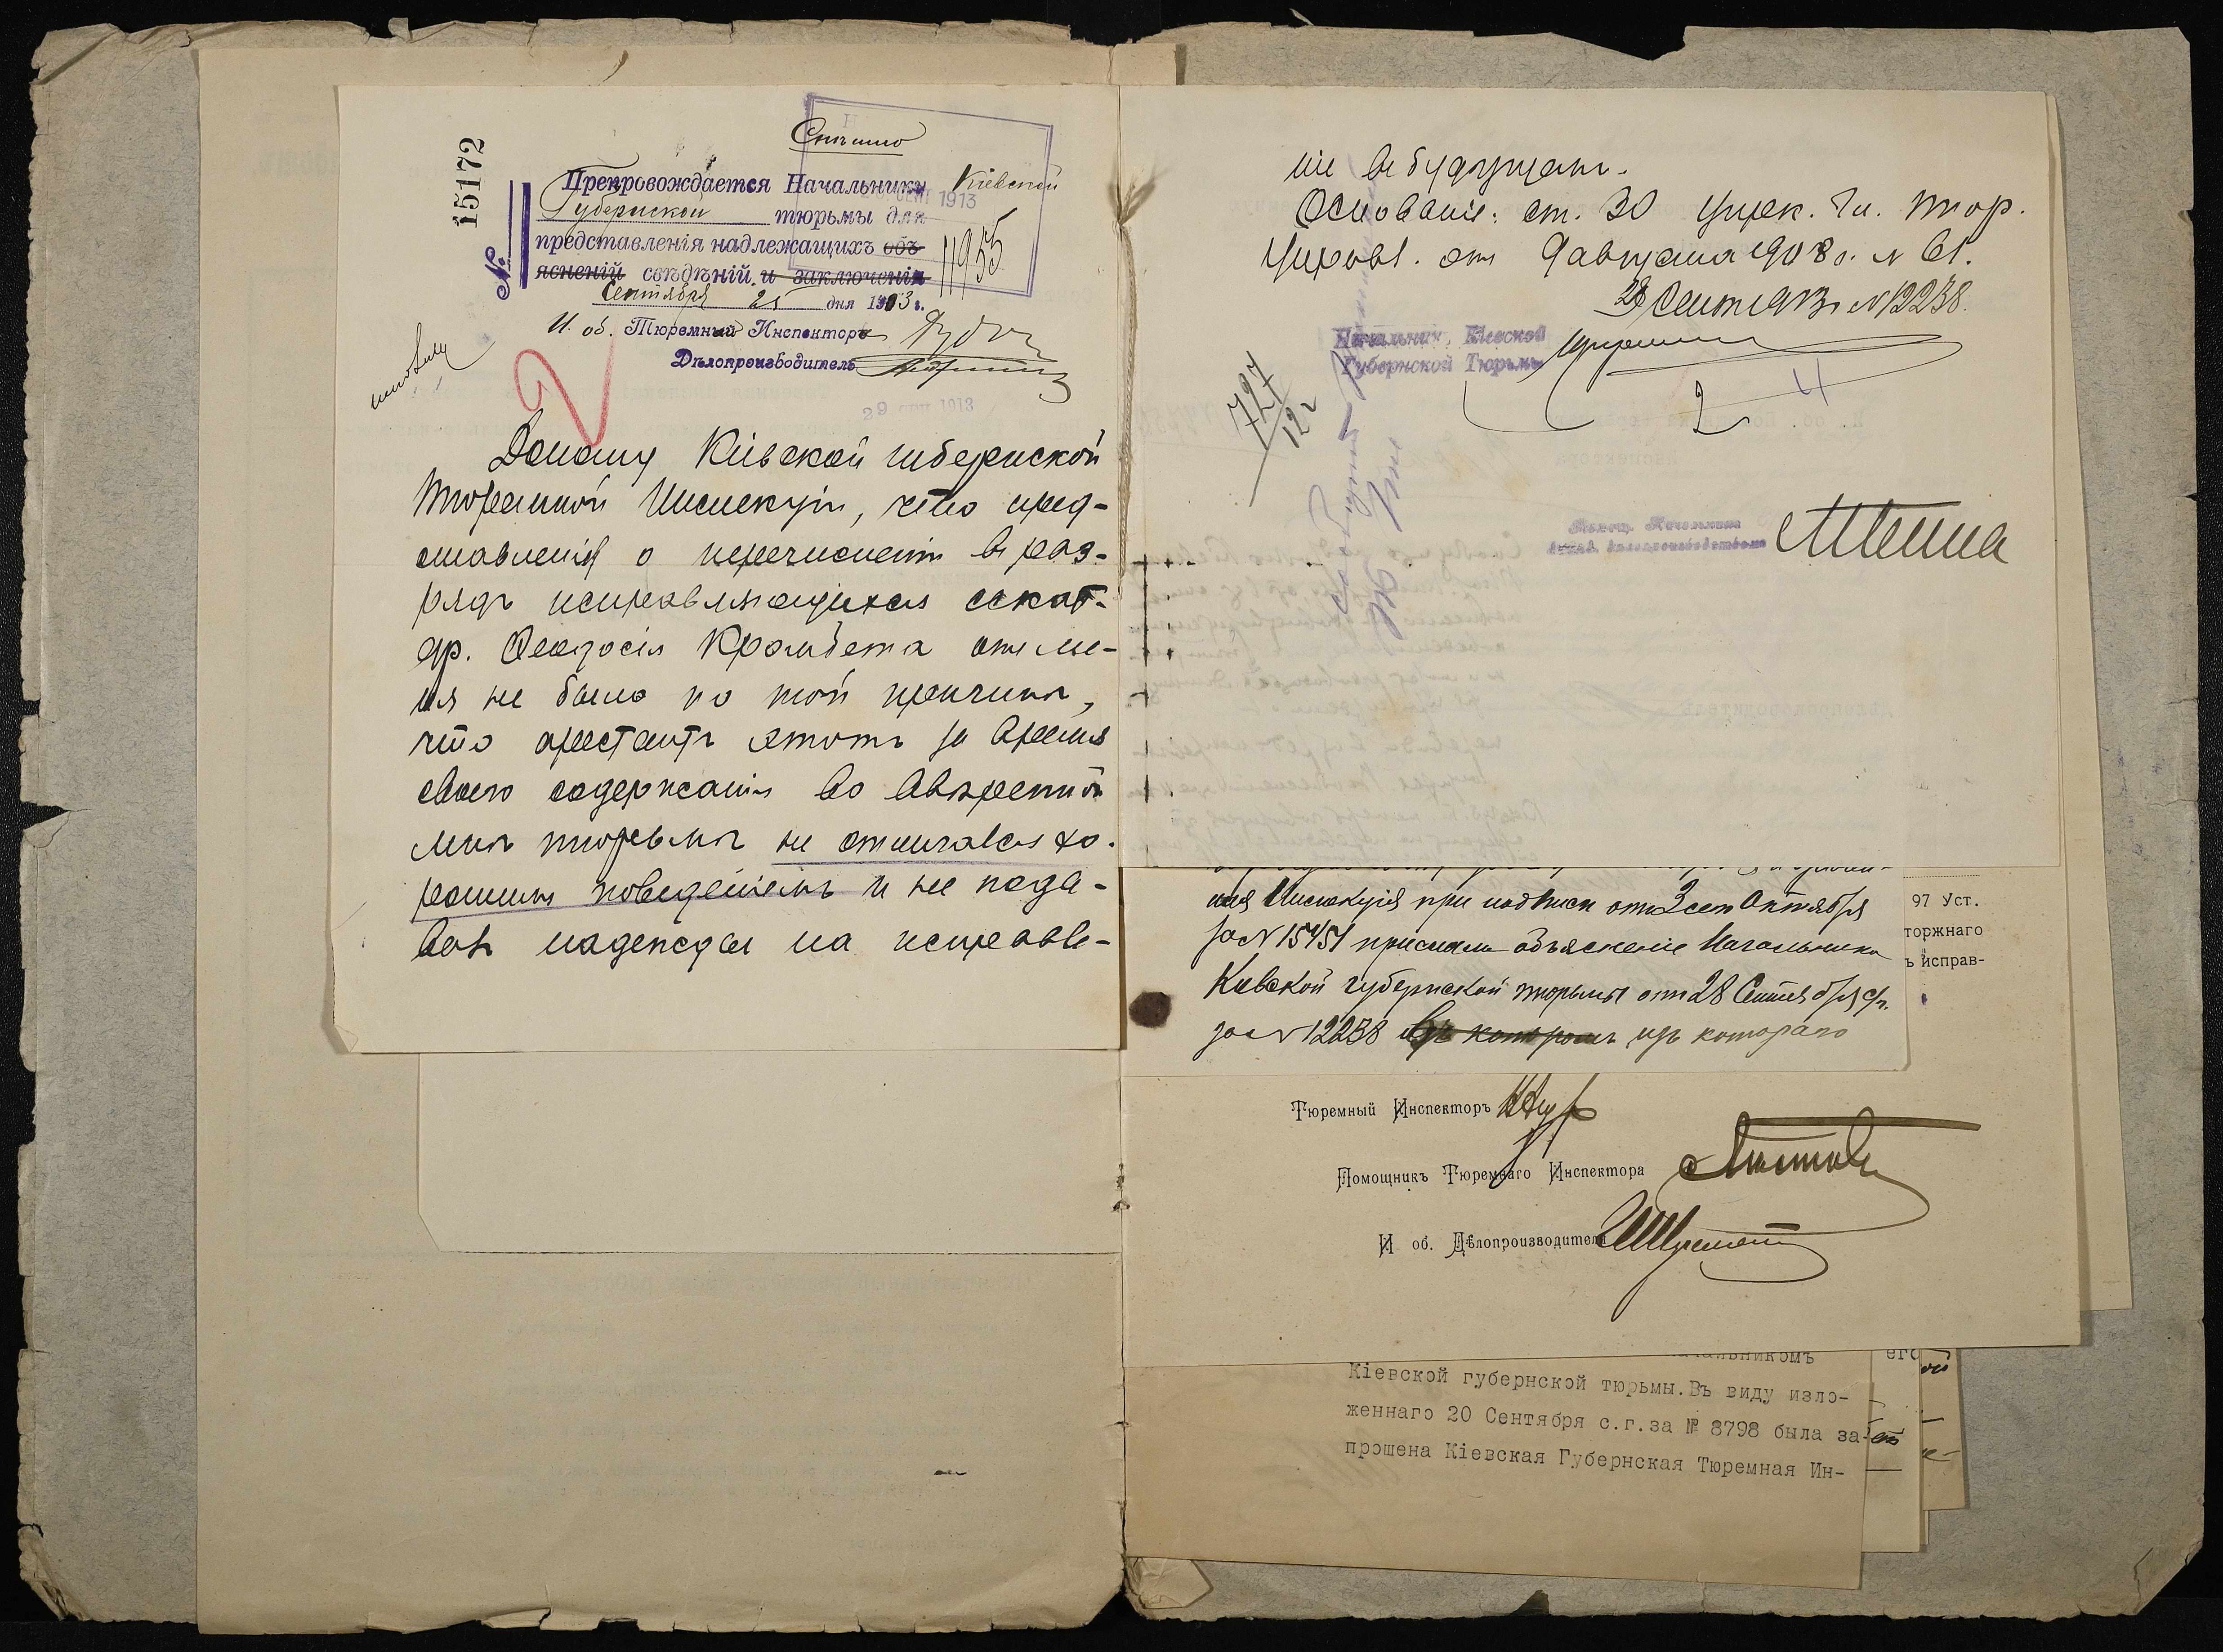 Спѣшно
15172
№
Препровождается Начальнику Кіевской
Губернской тюрьмы для
представленія надлежащихъ объ-
ясненій свѣдѣній и заключенія
Сентября 25 дня 1913 г.
11955
И. об. Тюремный Инспекторъ
Дѣлопроизводитель
29 сен 1913
Доношу Кіевской губернской
тюремной Инспекціи, что пред-
ставленія о перечисленіи въ раз-
рядъ исправляющихся сскат-
ар. Феодосія Кромбета отъ ме-
ня не было по той причинѣ,
что арестантъ этотъ за время
своего содержанія во ввѣренной
мнѣ тюрьмѣ не отличался хо-
рошимъ поведеніемъ и не пода-
валъ надежды на исправле-
ніе въ будущемъ.
Основаніе: ст. 30 Цирк. Гл. Тюр.
Управл. отъ 9 августа 1908 г. № 61.
28 Сент 1913 г. № 12238.
Начальникъ Кіевской
Губернской Тюрьмы
727
12 г
2
Помощ. Начальника
завѣд. дѣлопроизводствомъ
ная Инспекція при надписи отъ 3 сего Октября
за № 15451 прислала объясненіе Начальника
Кіевской губернской тюрьмы отъ 28 Сентября с/г.
за № 12238 въ которомъ изъ котораго
97 Уст.
торжнаго
ъ исправ-
Тюремный Инспекторъ
Помощникъ Тюремнаго Инспектора
И об. Дѣлопроизводителя
чальникомъ
Кіевской губернской тюрьмы. Въ виду изло-
женнаго 20 Сентября с.г. за № 8798 была за-
прошена Кіевская Губернская Тюремная Ин-
его